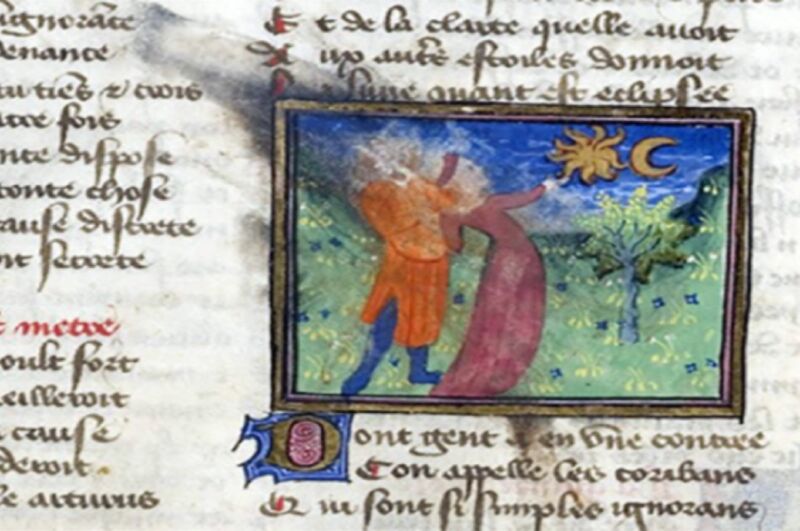 ignorāce
venance
tu tiēs & crois
fois
dispose
toute chose
cause discrete
nt secrete
metoe
oult fort
eilleroit
cause
detoit
le arturus
Et de la clarte quelle avoit
Aux autrs estoiles donnoit
a lune quant est eclipsee
Dont gent a en vne contree
Con appelle les coribans
Qui sont si simples ignorans